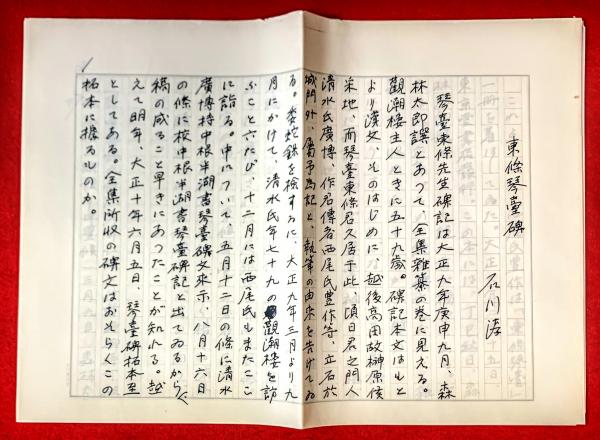 東條琴臺碑
石川淳
琴臺東條先生碑記は大正九年庚申九月、森
林太郎譔とあつて、全集雜集の巻に見える。
觀潮樓主人ときに五十九歳。碑記本文はもと
より漢文、そのはじめに、越後高田故榊原侯
采地、而琴臺東條君久居于此、頃日君之門人
清水氏廣博、作君傳者西尾氏豊作等、立石於
城門外、屬予為記と、執筆の由來を告げてゐ
る。委蛇錄を檢するに、大正九年三月より九
月にかけて、清水氏年七十九の觀潮樓を訪
ふこと六たび、十二月には西尾氏もまたここ
に詣る。中について、五月十二日の條に清水
廣博持中根半湖書琴臺碑文來示、八月十六日
の條に校中根半湖書琴臺碑記と出てゐるから、
稿の成ること早きにあつたことが知れる。越
えて明年、大正十年六月五日、琴臺碑拓本至
としてある。全集所収の碑文はおそらくこの
拓本に據るものか。